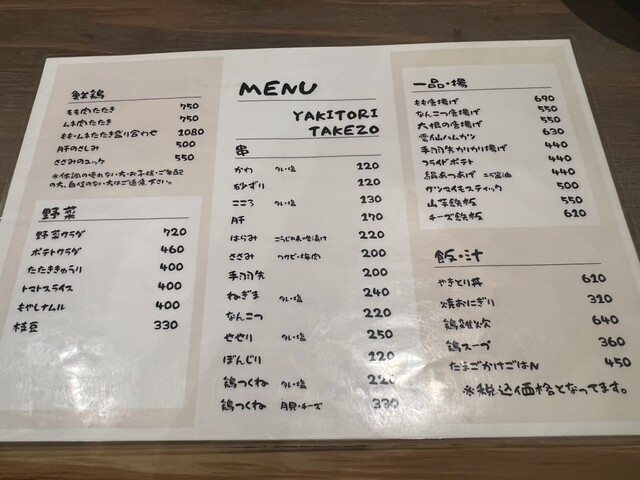 鮮鶏
もも肉たたき 750
ムネ肉たたき 750
もも・ムネたたき盛り合わせ 1080
肝のさしみ 500
ささみのユッケ 550
※体調の優れない方・お子様・ご年配
の方、自信のない方はご遠慮下さい。
野菜
野菜サラダ 720
ポテトサラダ 460
たたききゅうり 400
トマトスライス 400
もやしナムル 400
枝豆 330
MENU
YAKITORI
TAKEZO
串
かわ タレ・塩 120
砂ずり 120
こころ タレ・塩 130
肝 170
はらみ こうじ味噌漬け 220
ささみ ワサビ・梅肉 200
手羽先 200
ねぎま タレ・塩 240
なんこつ 220
せせり タレ・塩 250
ぼんじり 220
鶏つくね タレ・塩 220
鶏つくね 月見・チーズ 330
一品・揚
もも唐揚げ 690
なんこつ唐揚げ 550
大根の唐揚げ 550
雲仙ハムカツ 630
手羽先かりかり揚げ 440
フライドポテト 440
絹あつあげ ニラ醤油 440
サツマイモスティック 500
山芋鉄板 550
チーズ鉄板 610
飯・汁
やきとり丼 610
焼おにぎり 310
鶏雑炊 640
鶏スープ 360
たまごかけごはん 450
※税込価格となってます。